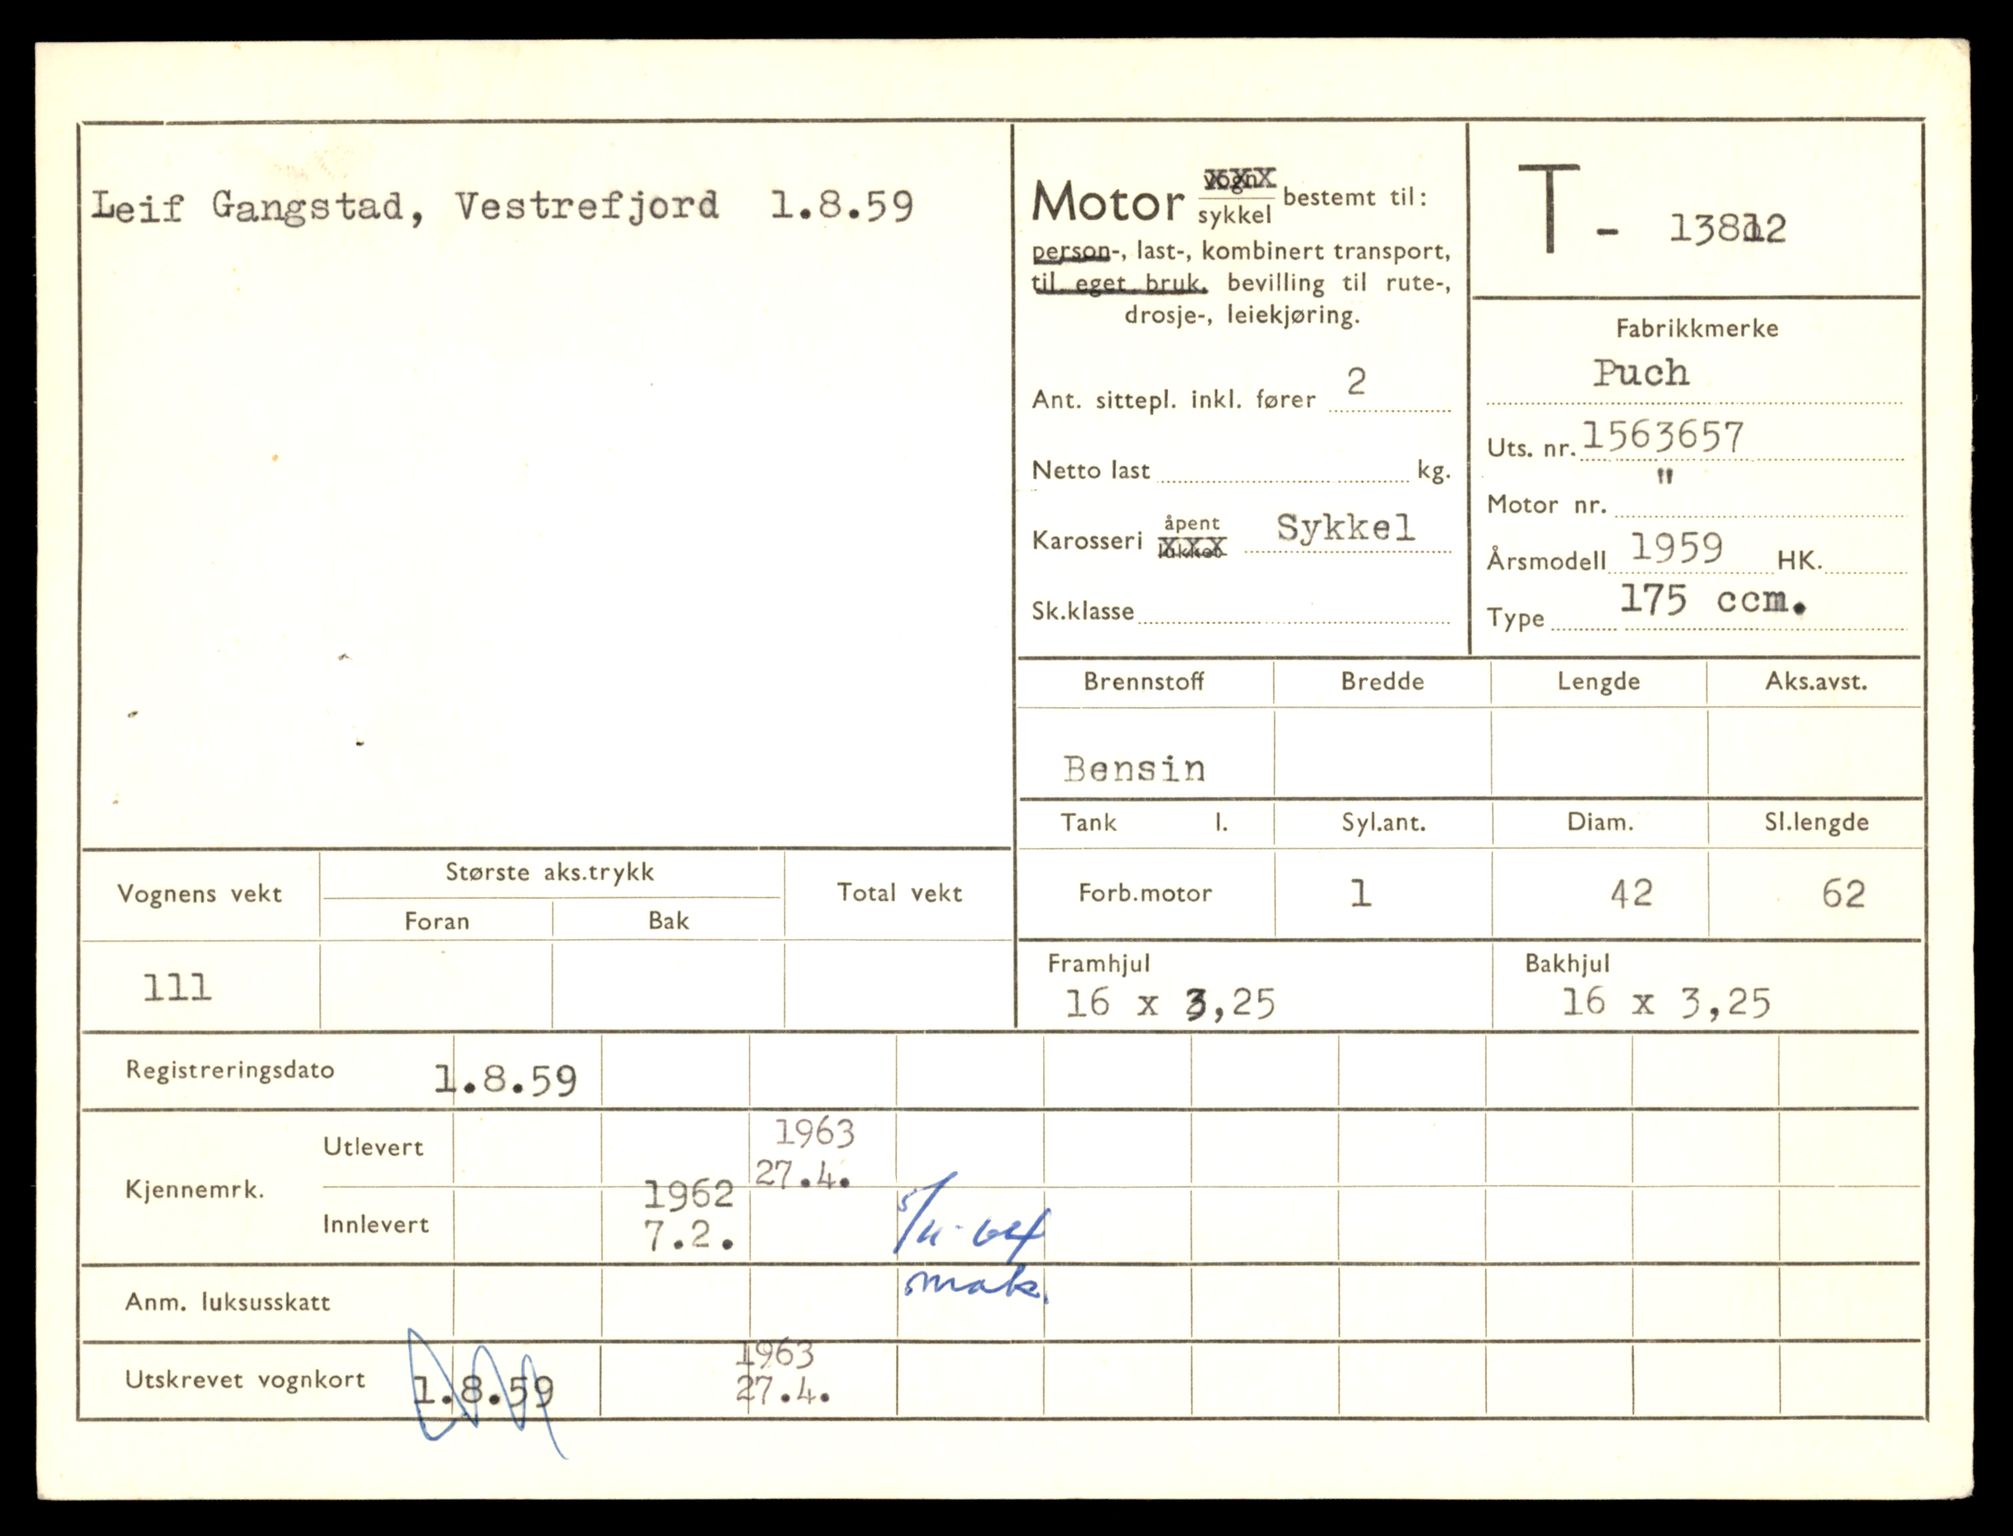 Leif Gangstad, Vestrefjord 1.8.59
Motor vogn sykkel bestemt til:
person-, last-, kombinert transport,
til eget bruk. bevilling til rute-,
drosje-, leiekjøring.
Ant. sittepl. inkl. fører 2
Netto last kg.
Karosseri åpent lukket Sykkel
Sk.klasse
T - 13812
Fabrikkmerke
Puch
Uts. nr. 1563657
Motor nr. "
Årsmodell 1959 HK.
Type 175 ccm.
Brennstoff Bredde Lengde Aks.avst.
Bensin
Tank l. Syl.ant. Diam. Sl.lengde
Forb.motor 1 42 62
Framhjul Bakhjul
16 x 3,25 16 x 3,25
Vognens vekt Største aks.trykk Total vekt
Foran Bak
111
Registreringsdato 1.8.59
Kjennemrk.
Utlevert 1963
27.4.
Innlevert 1962
7.2.
5/11-64
mak.
Anm. luksusskatt
Utskrevet vognkort 1.8.59 1963
27.4.